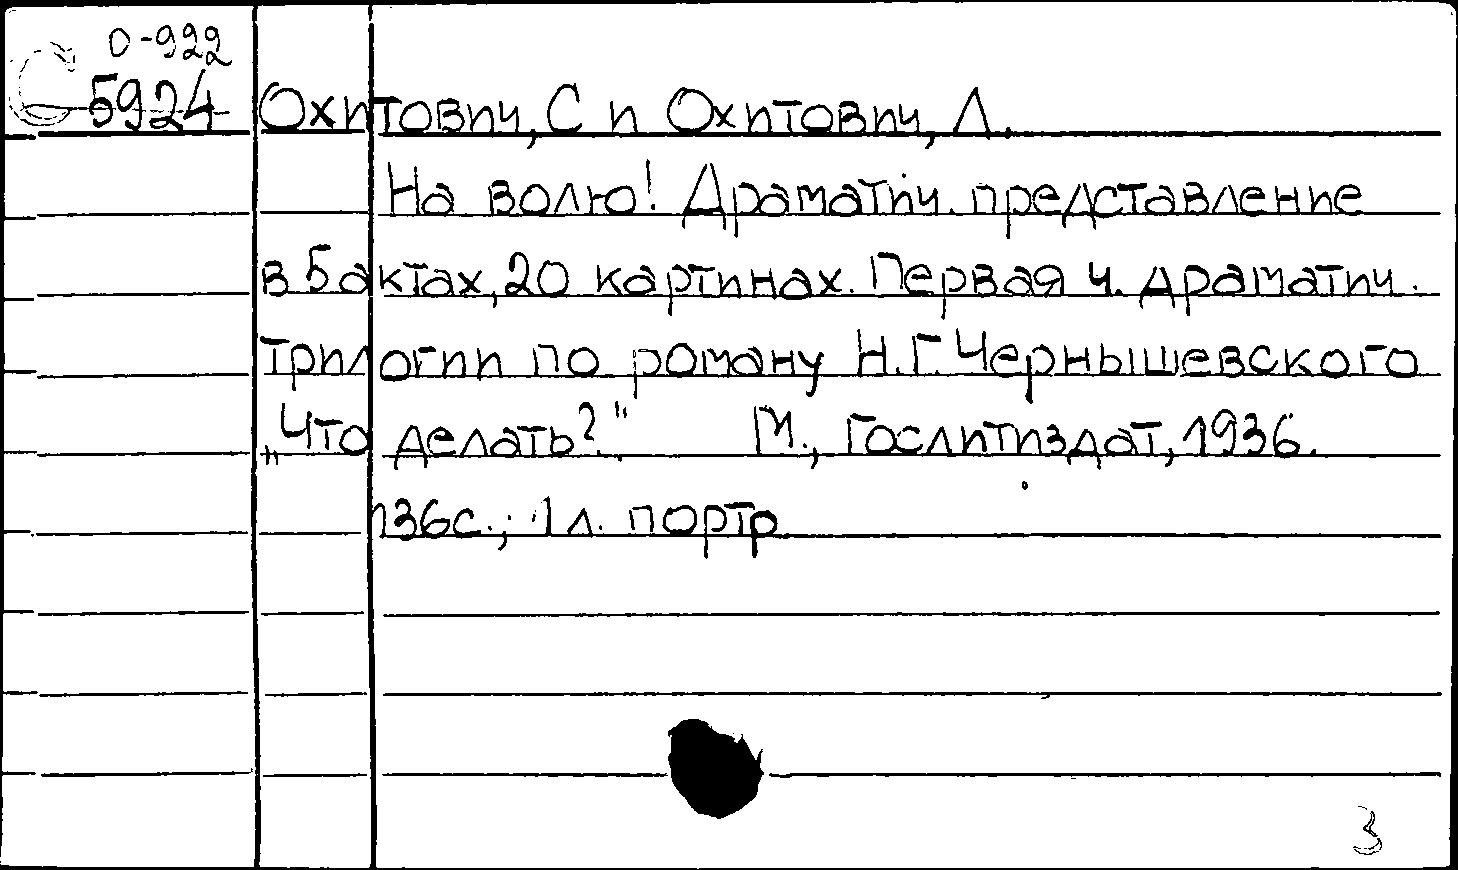 О-922
С 5924
Охитович, С и Охитович, Л.
На волю! Драматич. представление
в 5 актах, 20 картинах. Первая ч. драматич.
трилогии по роману Н.Г. Чернышевского
„Что делать?" М., Гослитиздат, 1936.
136с.; 1 л. портр
3